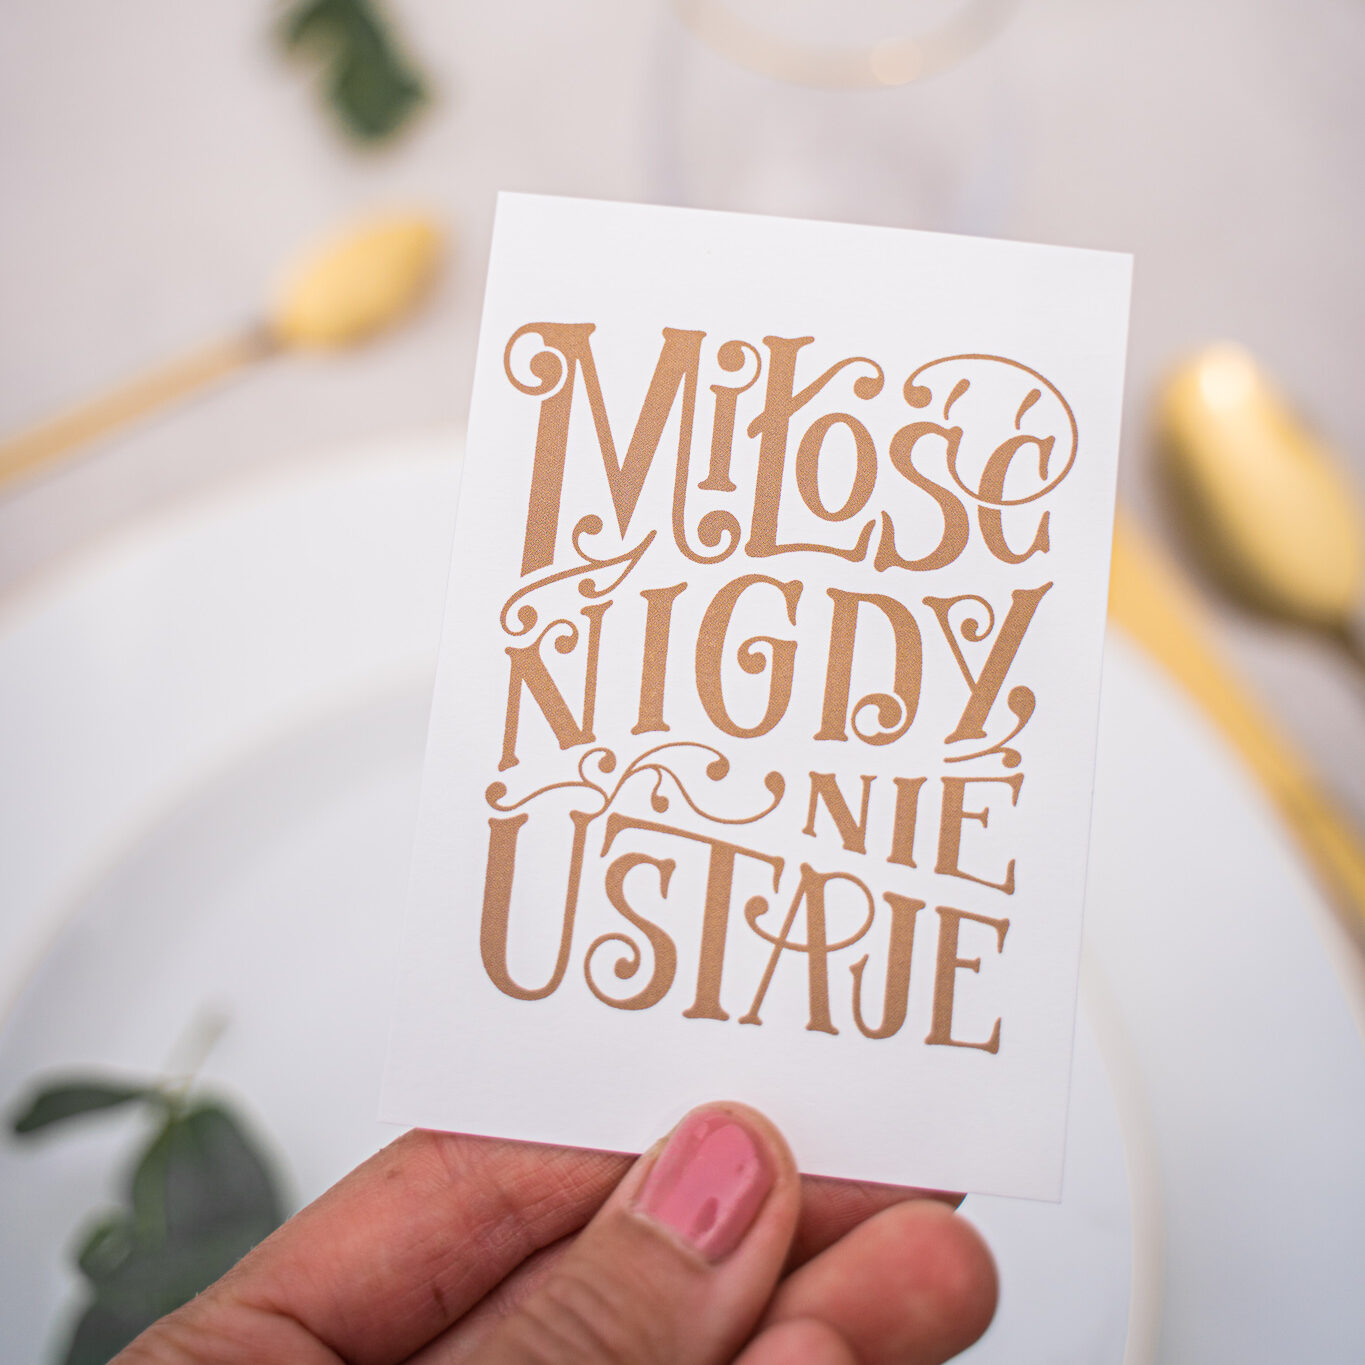 Miłość
NIGDY
NIE
USTAJE